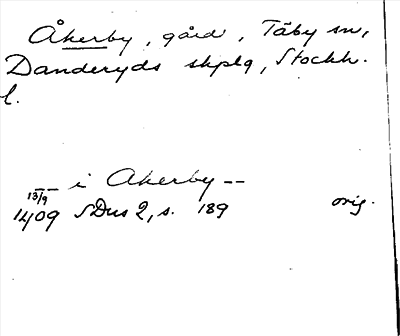 Åkerby, gård, Täby sn,
Danderyds skplg, Stockh.
l.
-- i Akerby --
13/9
1409 SDns 2, s. 189 orig.